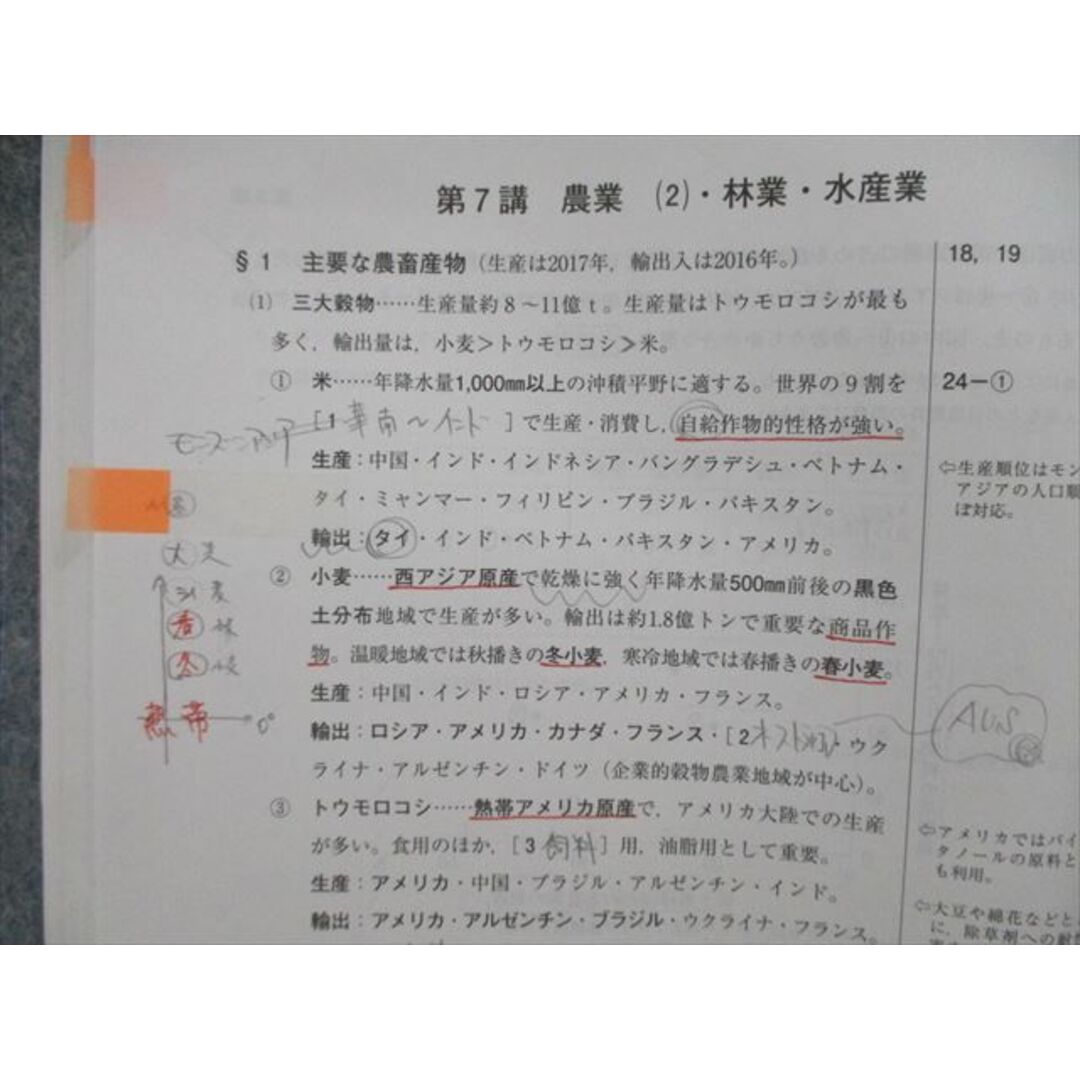 第7講 農業 (2)・林業・水産業
§1 主要な農畜産物（生産は2017年，輸出入は2016年。）
18, 19
(1) 三大穀物……生産量約8～11億t。生産量はトウモロコシが最も
多く，輸出量は，小麦＞トウモロコシ≫米。
① 米……年降水量1,000㎜以上の沖積平野に適する。世界の9割を
24-①
モンスーンアジア [1 華南～インド ] で生産・消費し，自給作物的性格が強い。
生産：中国・インド・インドネシア・バングラデシュ・ベトナム・
タイ・ミャンマー・フィリピン・ブラジル・パキスタン。
⇦生産順位はモン
アジアの人口順
ぼ対応。
輸出：タイ・インド・ベトナム・パキスタン・アメリカ。
② 小麦……西アジア原産で乾燥に強く年降水量500㎜前後の黒色
土分布地域で生産が多い。輸出は約1.8億トンで重要な商品作
物。温暖地域では秋播きの冬小麦，寒冷地域では春播きの春小麦。
生産：中国・インド・ロシア・アメリカ・フランス。
輸出：ロシア・アメリカ・カナダ・フランス・[2 オーストラリア]・ウク
ライナ・アルゼンチン・ドイツ（企業的穀物農業地域が中心）。
AUS
大
麦
春
冬
熱帯
0°
③ トウモロコシ……熱帯アメリカ原産で，アメリカ大陸での生産
が多い。食用のほか，[3 飼料] 用，油脂用として重要。
⇦アメリカではバイ
タノールの原料と
も利用。
生産：アメリカ・中国・ブラジル・アルゼンチン・インド。
輸出：アメリカ・アルゼンチン・ブラジル・ウクライナ・フランス。
⇦大豆や綿花などと
に，除草剤への耐